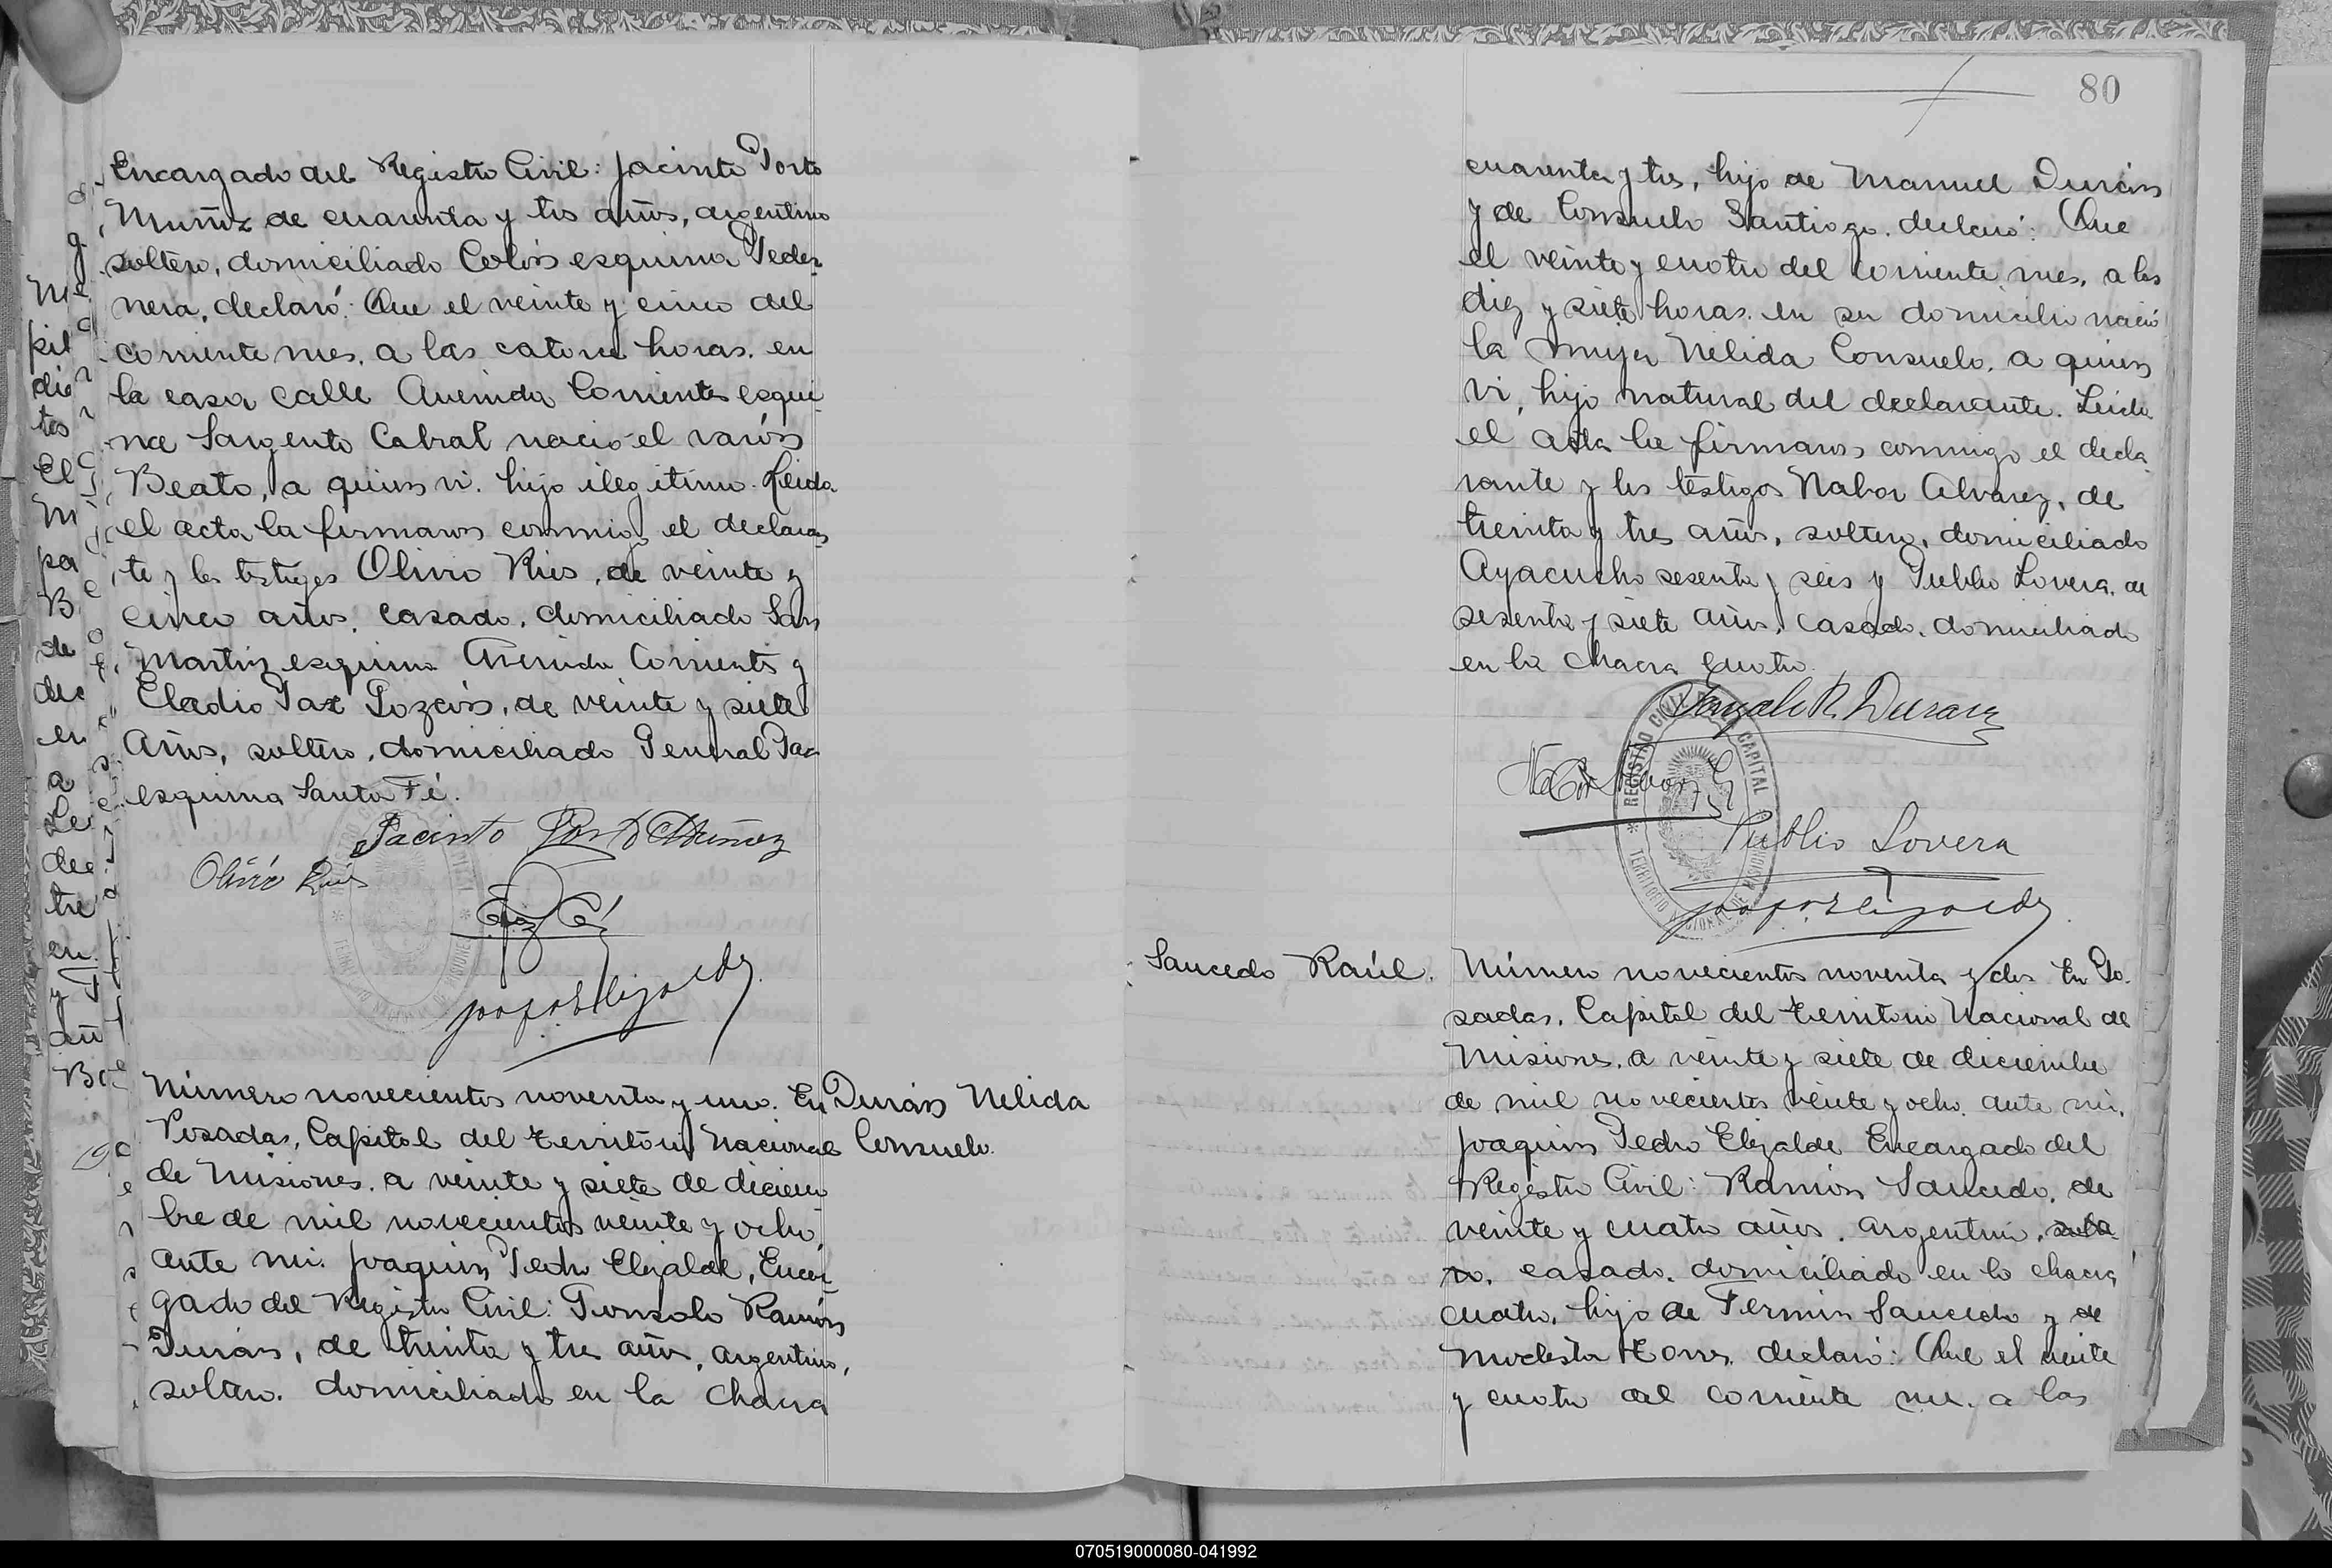 Encargado del Registro Civil: Jacinto Porto
Muñoz de cuarenta y tres años, argentino
soltero, domiciliado Colón esquina Peder-
nera, declaró: Que el veinte y cinco del
corriente mes, a las catorce horas, en
la casa calle Avenida Corrientes esqui-
na Sargento Cabral nació el varón
Beato, a quien vi, hijo ilegitimo. Leida
el acta la firmaron conmigo el declaran-
te y los testigos Olivio Rius, de veinte y
cinco años, casado, domiciliado San
Martin esquina Avenida Corrientes y
Eladio Paz, de veinte y siete
años, soltero, domiciliado General Paz
esquina Santa Fé.
Jacinto Porto Muñoz
Olivio Rius
Número novecientos noventa y uno. En
Posadas, Capital del Territorio Nacional
de Misiones, a veinte y siete de diciem
bre de mil novecientos veinte y ocho,
ante mi Joaquin Pedro Elizalde, Encar-
gado del Registro Civil: Gonzalo Ramón
Durán, de treinta y tres años, argentino,
soltero, domiciliado en la chacra
Durán Nelida
Consuelo.
80
cuarenta y tres, hijo de Manuel Durán
y de Consuelo Santiago, declaró: Que
el veinte y cuatro del corriente mes, a las
diez y siete horas, en su domicilio nació
la mujer Nélida Consuelo, a quien
vi, hijo natural del declarante. Leida
el acta la firmaron conmigo el decla
rante y los testigos Nabor Alvarez, de
treinta y tres años, soltero, domiciliado
Ayacucho sesenta y seis y Publio Lovera, de
sesenta y siete años, casado, domiciliado
en la chacra cuatro.
Gonzalo R. Duran
REGISTRO CIVIL CAPITAL
TERRITORIO NACIONAL DE MISIONES
Publio Lovera
Saucedo Raúl.
Número novecientos noventa y dos. En Po-
sadas, Capital del Territorio Nacional de
Misiones, a veinte y siete de diciembre
de mil novecientos veinte y ocho, ante mi,
Joaquin Pedro Elizalde Encargado del
Registro Civil: Ramón Saucedo, de
veinte y cuatro años, argentino, solte
ro, casado, domiciliado en la chacra
cuatro, hijo de Fermin Saucedo y de
Modesta Torres, declaró: Que el veinte
y cuatro del corriente mes, a las
070519000080-041992